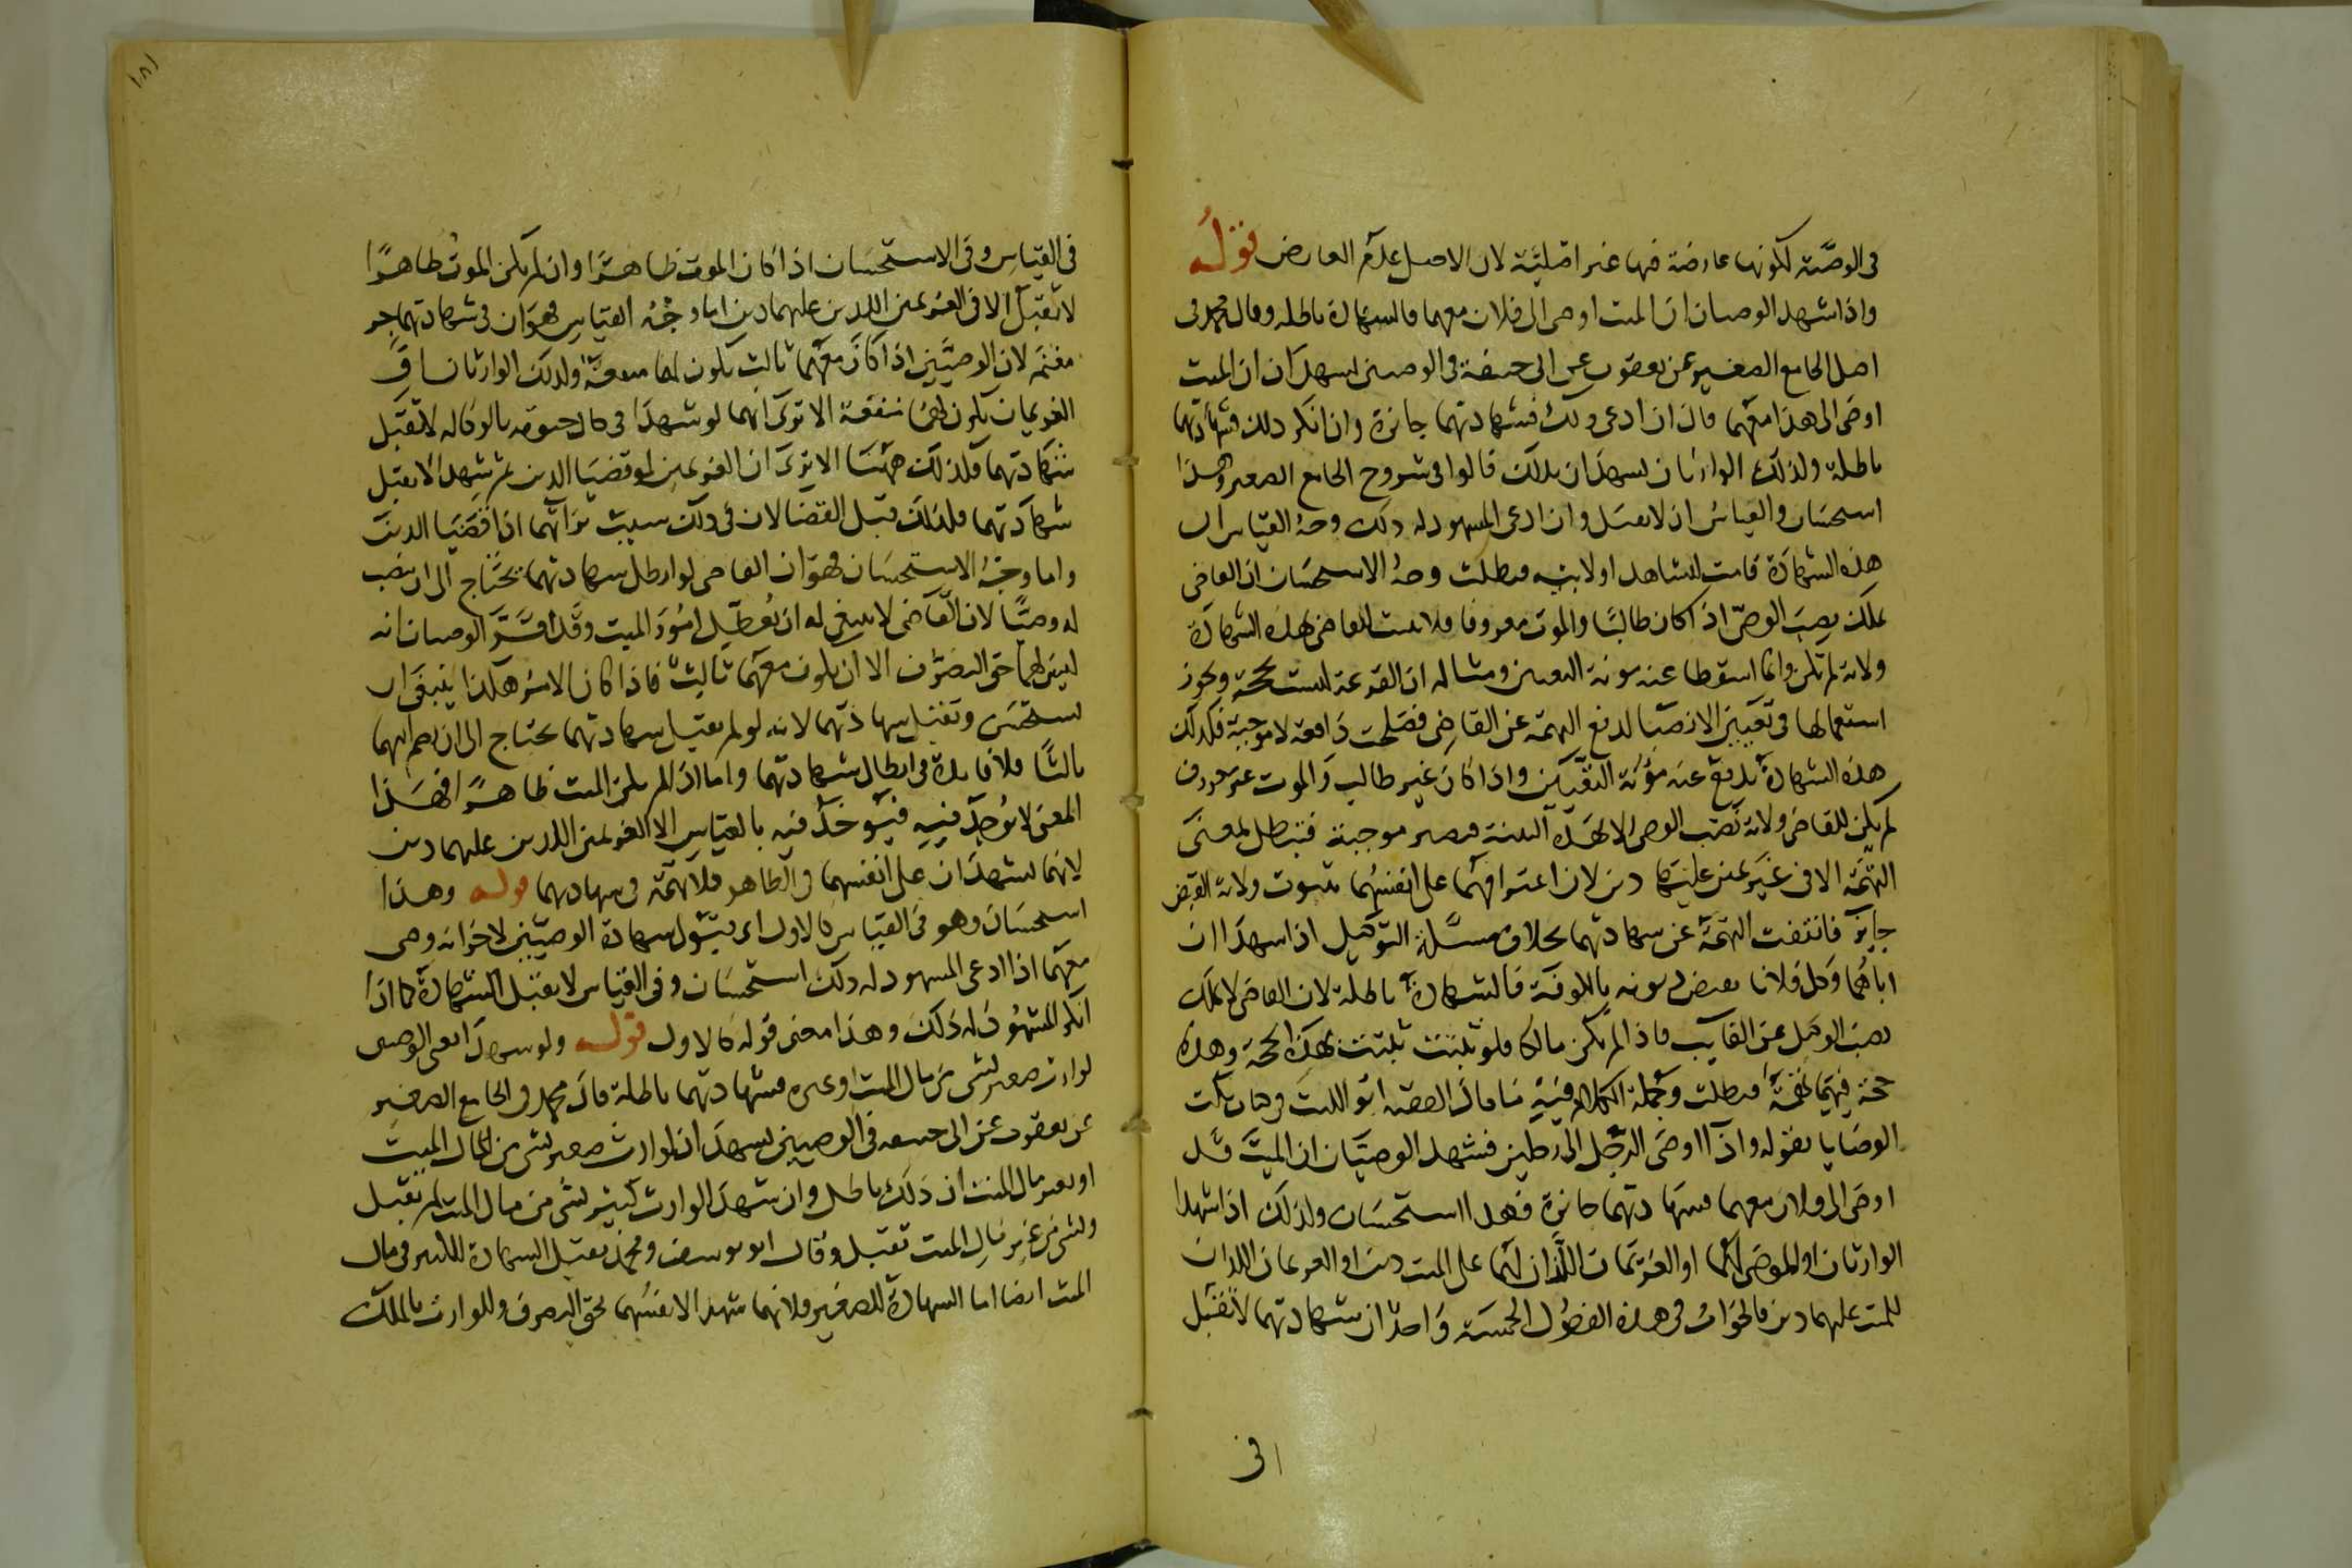 فى الوصية لكونها عارضة فيها غير اصلية لان الاصل عدم العارض قوله
واذا شهد الوصيان ان الميت اوصى الى فلان معهما فالشهادة باطلة وقال محمد فى
اصل الجامع الصغير عن يعقوب عن ابى حنيفة فى الوصيين يشهدان ان الميت
اوصى الى هذا معهما قال ان ادعى ذلك فشهادتهما جائزة وان انكر ذلك فشهادتهما
باطلة ولذلك الوارثان يشهدان بذلك قالوا فى شروح الجامع الصغير وهذا
استحسان والقياس ان لا تقبل وان ادعى المشهود له ذلك وجه القياس ان
هذه الشهادة قامت للشاهد اولا بنيه فبطلت وجه الاستحسان ان القاضى
يملك نصب الوصى اذا كان طالبا والموت معروفا فلا يثبت للقاضى بهذه الشهادة
ولاية لم تكن وانما اسقطا عنه مونة التعيين ومثاله ان القرعة ليست بحجة ويجوز
استعمالها فى تعيين الانصبا لدفع التهمة عن القاضى فصلحت دافعة لا موجبة فكذلك
هذه الشهادة تدفع عنه مؤنة التعيين واذا كان غير طالب والموت غير معروف
لم يكن للقاضى ولاية نصب الوصى الا بهذه البينة فتصير موجبة فتبطل لمعنى
التهمة الا فى غريمين عليهما دين لان اعترافهما على انفسهما بثبوت ولاية القبض
جايز فانتفت التهمة عن شهادتهما بخلاف مسئلة التوكيل اذا شهدا ان
اباهما وكل فلانا بقبض ديونه بالكوفة فالشهادة باطلة لان القاضى لا يملك
نصب الوكيل عن الغايب فاذا لم يكن مالكا فلو ثبتت ثبتت بهذه الحجة وهذه
حجة فيها تهمة فبطلت وجملة الكلام فيه ما قال الفقيه ابو الليث فى كتاب نكت
الوصايا بقوله واذا اوصى الرجل الى رجلين فشهد الوصيان ان الميت قد
اوصى الى فلان معهما فشهادتهما جائزة فهذا استحسان ولذلك اذا شهدا
الوارثان او الموصى لهما او الغريمان اللذان لهما على الميت دين او الغريمان اللذان
للميت عليهما دين فالجواب فى هذه الفصول الخمسة واحد ان شهادتهما لا تقبل
فى
١٨١
فى القياس وفى الاستحسان اذا كان الموت ظاهرا وان لم يكن الموت ظاهرا
لا تقبل الا فى الغريمين اللذين عليهما دين اما وجه القياس فهو ان فى شهادتهما جر
مغنم لان الوصيين اذا كان معهما ثالث يكون لهما معونة ولذلك الوارثان
الغريمان يكون لهما منفعة الا ترى انهما لو شهدا فى حال حيوته بالوكالة لا تقبل
شهادتهما فلذلك ههنا الا ترى ان الغريمين لو قضيا الدين ثم شهدا لا تقبل
شهادتهما فلذلك قبل القضا لان فى ذلك سبب براتهما اذا قضيا الدين
واما وجه الاستحسان فهو ان القاضى لو ابطل شهادتهما يحتاج الى ان ينصب
له وصيا لان القاضى لا ينبغى له ان يعطل امور الميت وقد اقر الوصيان انه
ليس لهما حق التصرف الا ان يكون معهما ثالث فاذا كان الامر هكذا ينبغى ان
يستحسن وتقبل شهادتهما لانه لو لم تقبل شهادتهما يحتاج الى ان يضم اليهما
ثالثا فلا فايدة فى ابطال شهادتهما واما اذا لم يكن الميت ظاهرا فهذا
المعنى لا يوجد فيه فيوخذ فيه بالقياس الا الغريمين اللذين عليهما دين
لانهما يشهدان على انفسهما فى الظاهر فلا تهمة فى شهادتهما قوله وهذا
استحسان وهو فى القياس كالاول اى قبول شهادة الوصيين لاخر انه وصى
معهما اذا ادعى المشهود له ذلك استحسان وفى القياس لا تقبل الشهادة كما اذا
انكر المشهود له ذلك وهذا معنى قوله كالاول قوله ولو شهدا يعنى الوصيين
لوارث صغير بشى من مال الميت او غيره فشهادتهما باطلة قال محمد فى الجامع الصغير
عن يعقوب عن ابى حنيفة فى الوصيين يشهدان لوارث صغير بشى من مال الميت
او بغير مال الميت ان ذلك باطل وان شهدا لوارث كبير بشى من مال الميت لم تقبل
وبشى من غير مال الميت تقبل وقال ابو يوسف ومحمد تقبل الشهادة للكبير فى مال
الميت ايضا اما الشهادة للصغير فلانهما شهدا لانفسهما بحق التصرف وللوارث بالملك